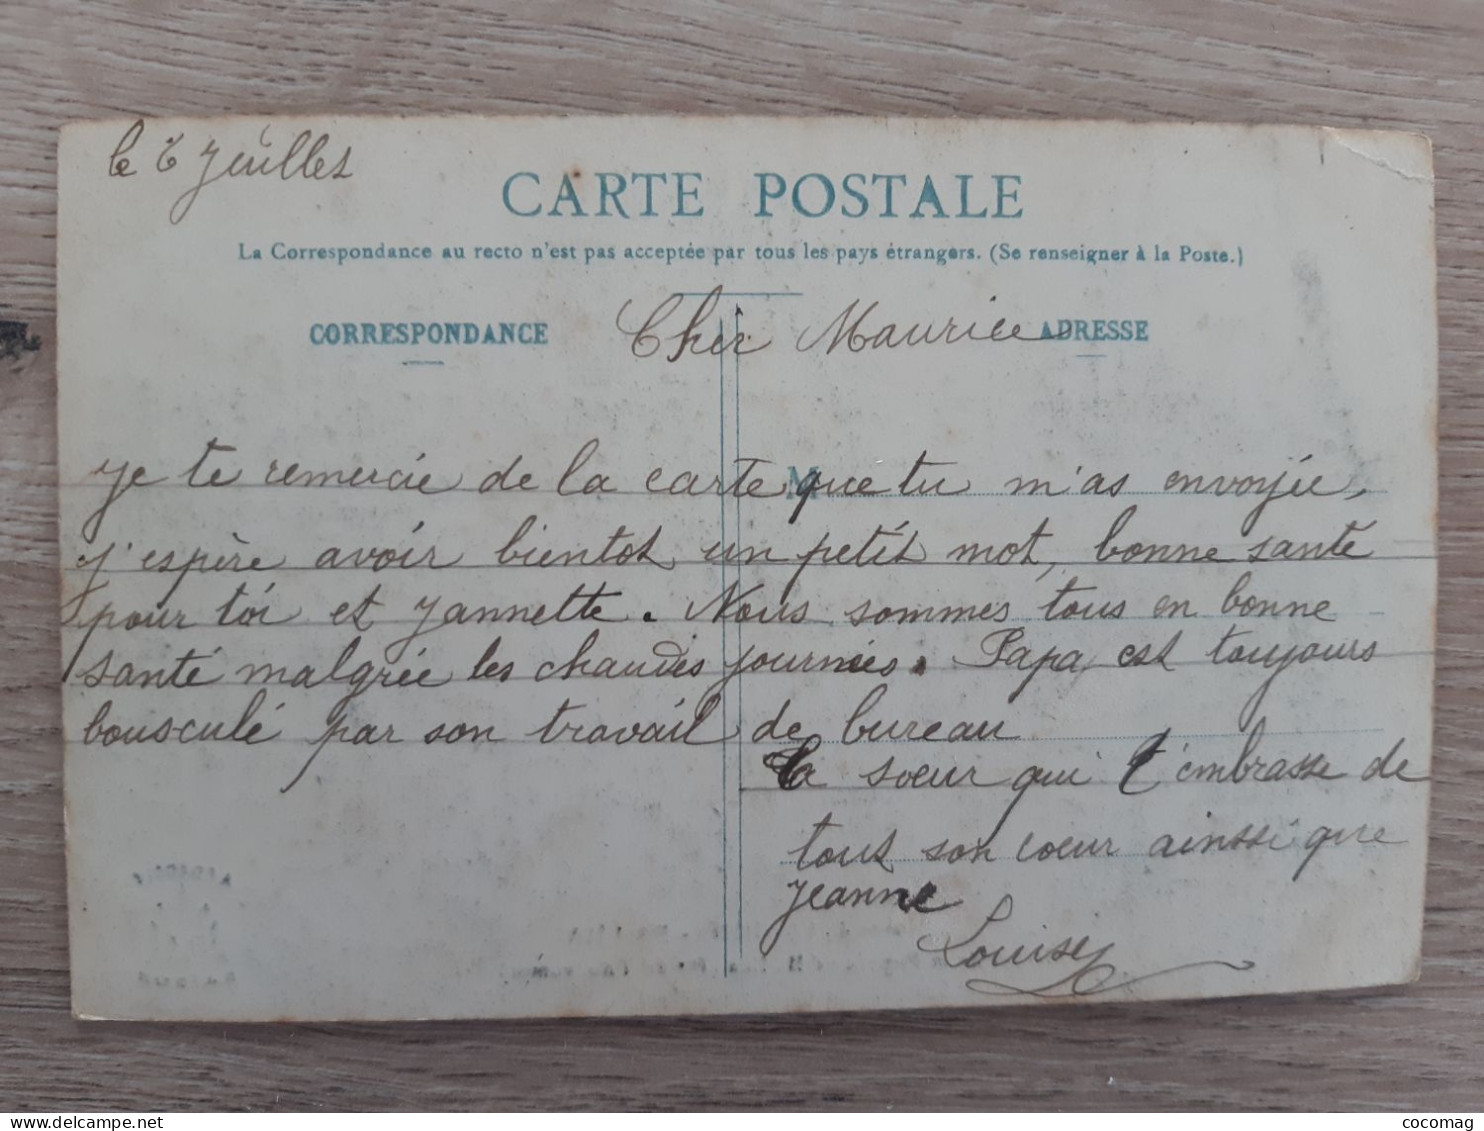 le 6 Juillet
CARTE POSTALE
La Correspondance au recto n'est pas acceptée par tous les pays étrangers. (Se renseigner à la Poste.)
CORRESPONDANCE
ADRESSE
Cher Maurice
M
Je te remercie de la carte que tu m'as envoyée,
j'espère avoir bientot un petit mot, bonne santé
pour toi et Jannette. Nous sommes tous en bonne
santé malgrée les chaudes journées. Papa est toujours
bousculé par son travail de bureau
Ta soeur qui t'embrasse de
tout son coeur ainssi que
Jeanne
Louise
cocomag